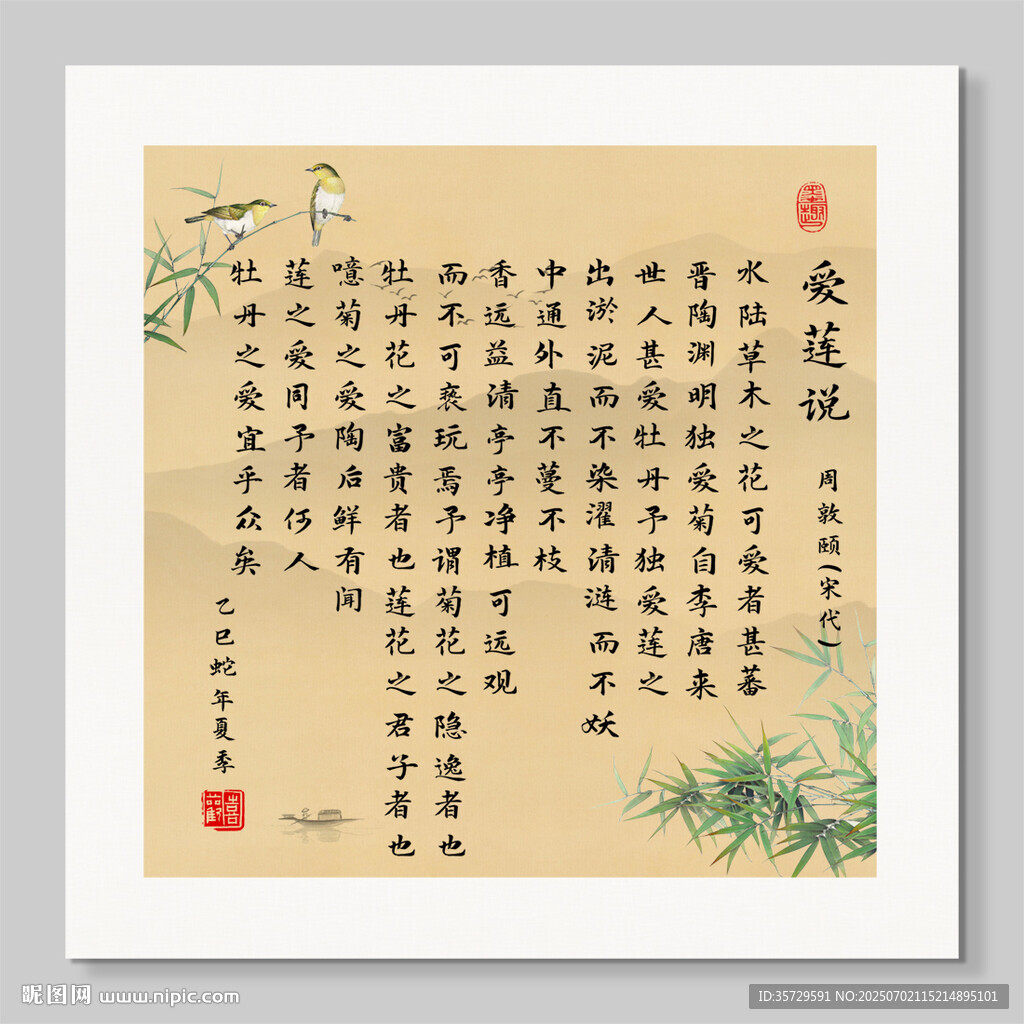 墨趣
爱莲说
周敦颐(宋代)
水陆草木之花可爱者甚蕃
晋陶渊明独爱菊自李唐来
世人甚爱牡丹予独爱莲之
出淤泥而不染濯清涟而不妖
中通外直不蔓不枝
香远益清亭亭净植可远观
而不可亵玩焉予谓菊花之隐逸者也
牡丹花之富贵者也莲花之君子者也
噫菊之爱陶后鲜有闻
莲之爱同予者何人
牡丹之爱宜乎众矣
乙巳蛇年夏季
昵图网 www.nipic.com
ID:35729591 NO:20250702115214895101